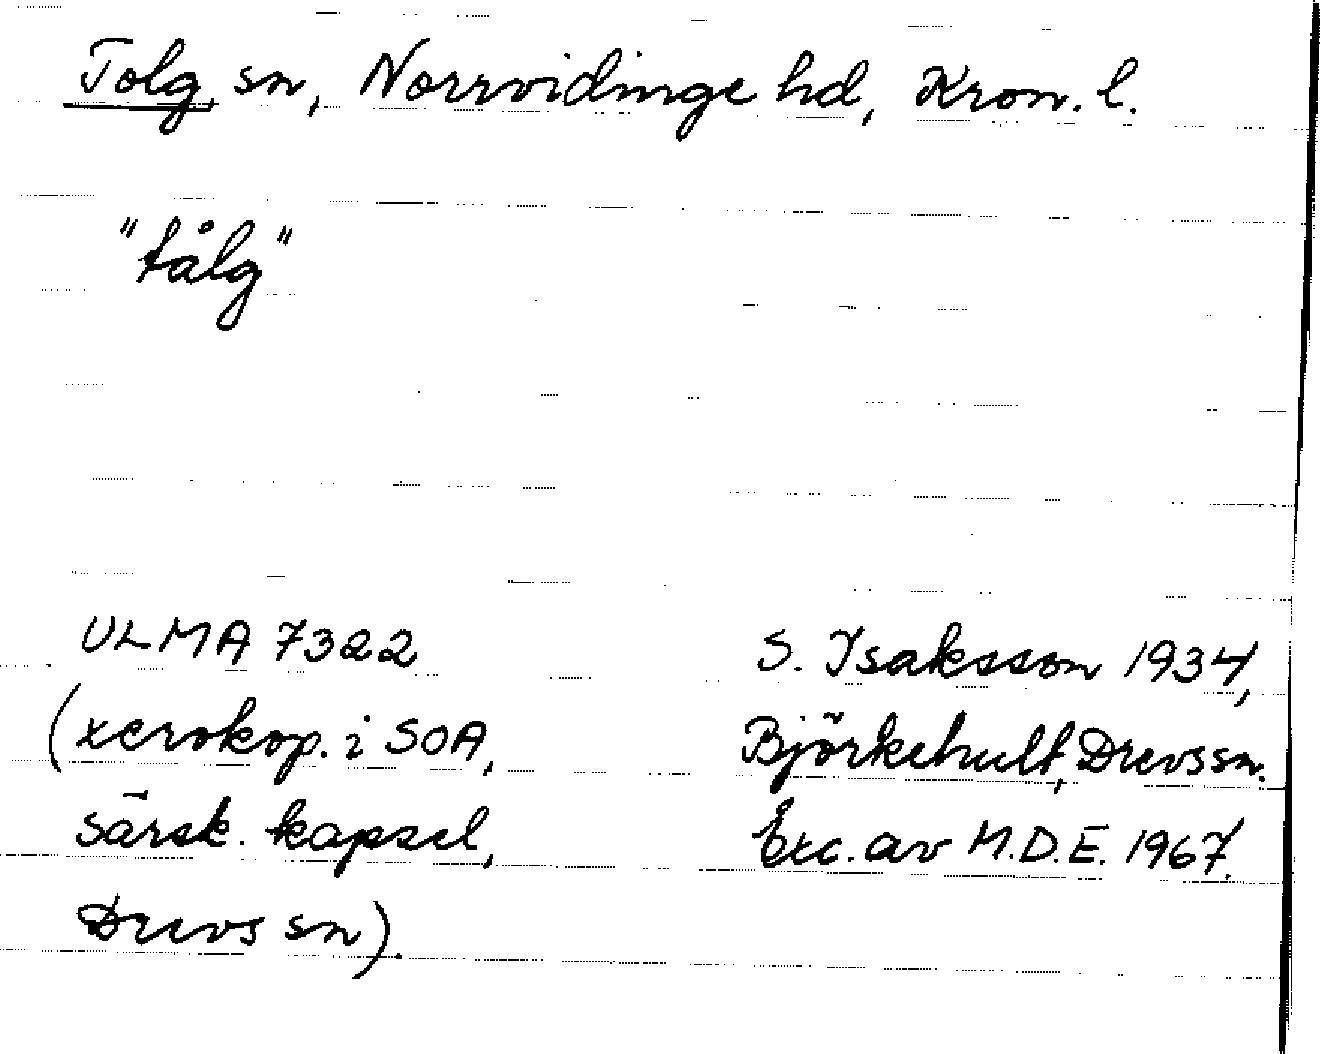 Tolg sn, Norrvidinge hd, Kron. l.
"tålg"
ULMA 7322
(xerokop. i SOA,
särsk. kapsel,
Drevs sn).
S. Isaksson 1934,
Björkehult, Drevs sn.
Exc. av M.D.E. 1967.